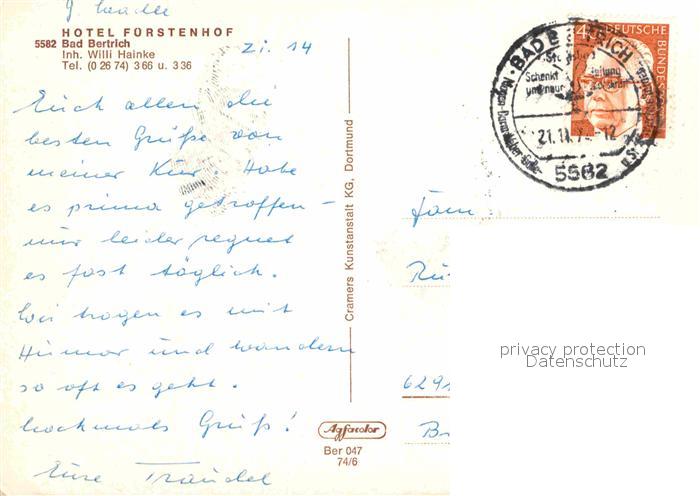 HOTEL FÜRSTENHOF
5582 Bad Bertrich
Inh. Willi Hainke
Tel. (0 26 74) 3 66 u. 3 36
Zi. 14
Euch allen die
besten Grüße von
meiner Kur. Habe
es prima getroffen -
nur leider regnet
es fast täglich.
Wir tragen es mit
Humor und wandern
so oft es geht.
Nochmals Gruß!
Eure Traudel
Cramers Kunstanstalt KG, Dortmund
Agfacolor
Ber 047
74/6
DEUTSCHE BUNDES
BAD BERTRICH
Schenkt
21.11.7 -12
5582
Fam
629
privacy protection
Datenschutz